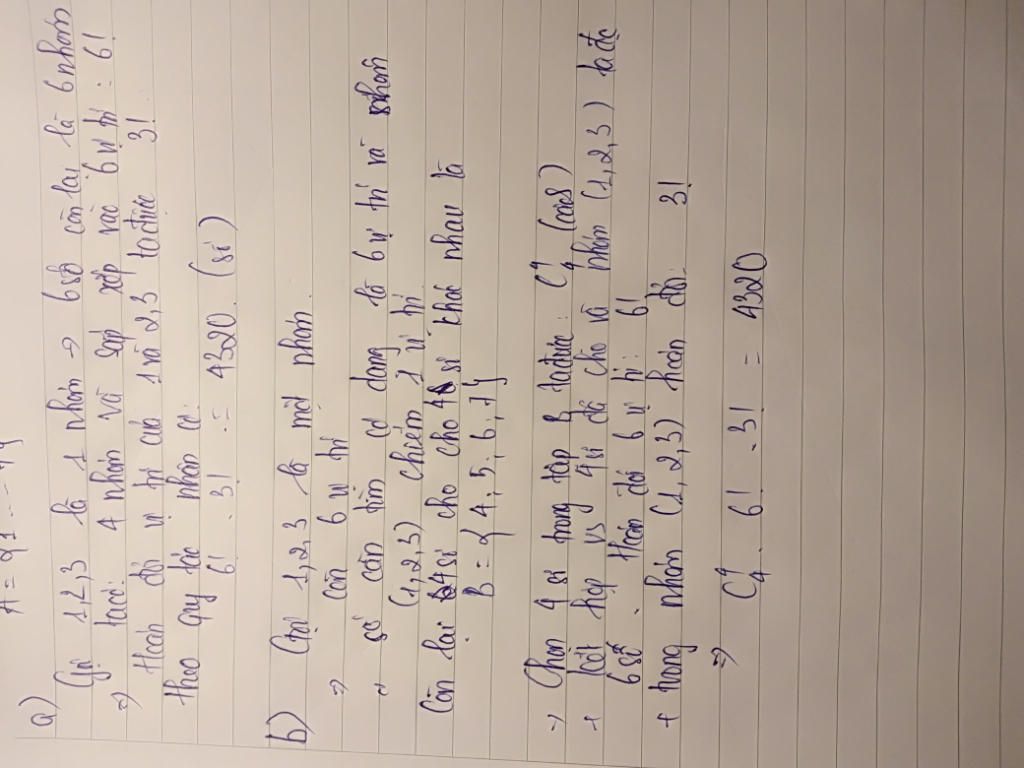 A = {1 .... 7}
a)
Gọi 1,2,3 là 1 nhóm → 6 số còn lại là 6 nhóm
⇒ ta có: 4 nhóm và sắp xếp vào 6 vị trí : 6!
Hoán đổi vị trí của 1 và 2,3 ta được 3!
theo quy tắc nhân có:
6! . 3! = 4320 (số)
b) Gọi 1,2,3 là một nhóm.
⇒ còn 6 vị trí
→ số cần tìm có dạng là 6 vị trí và nhóm
(1,2,3) chiếm 1 vị trí
Còn lại 4 số cho cho 4 số khác nhau là
B = {4;5;6;7}
→ Chọn 4 số trong tập B ta được: C⁴₄ (cách)
+ kết hợp vs 4 số đã cho và nhóm (1,2,3) ta đc
6 số. Hoán đổi 6 vị trí: 6!
+ trong nhóm (1,2,3) hoán đổi: 3!
⇒ C⁴₄ . 6! . 3! = 4320